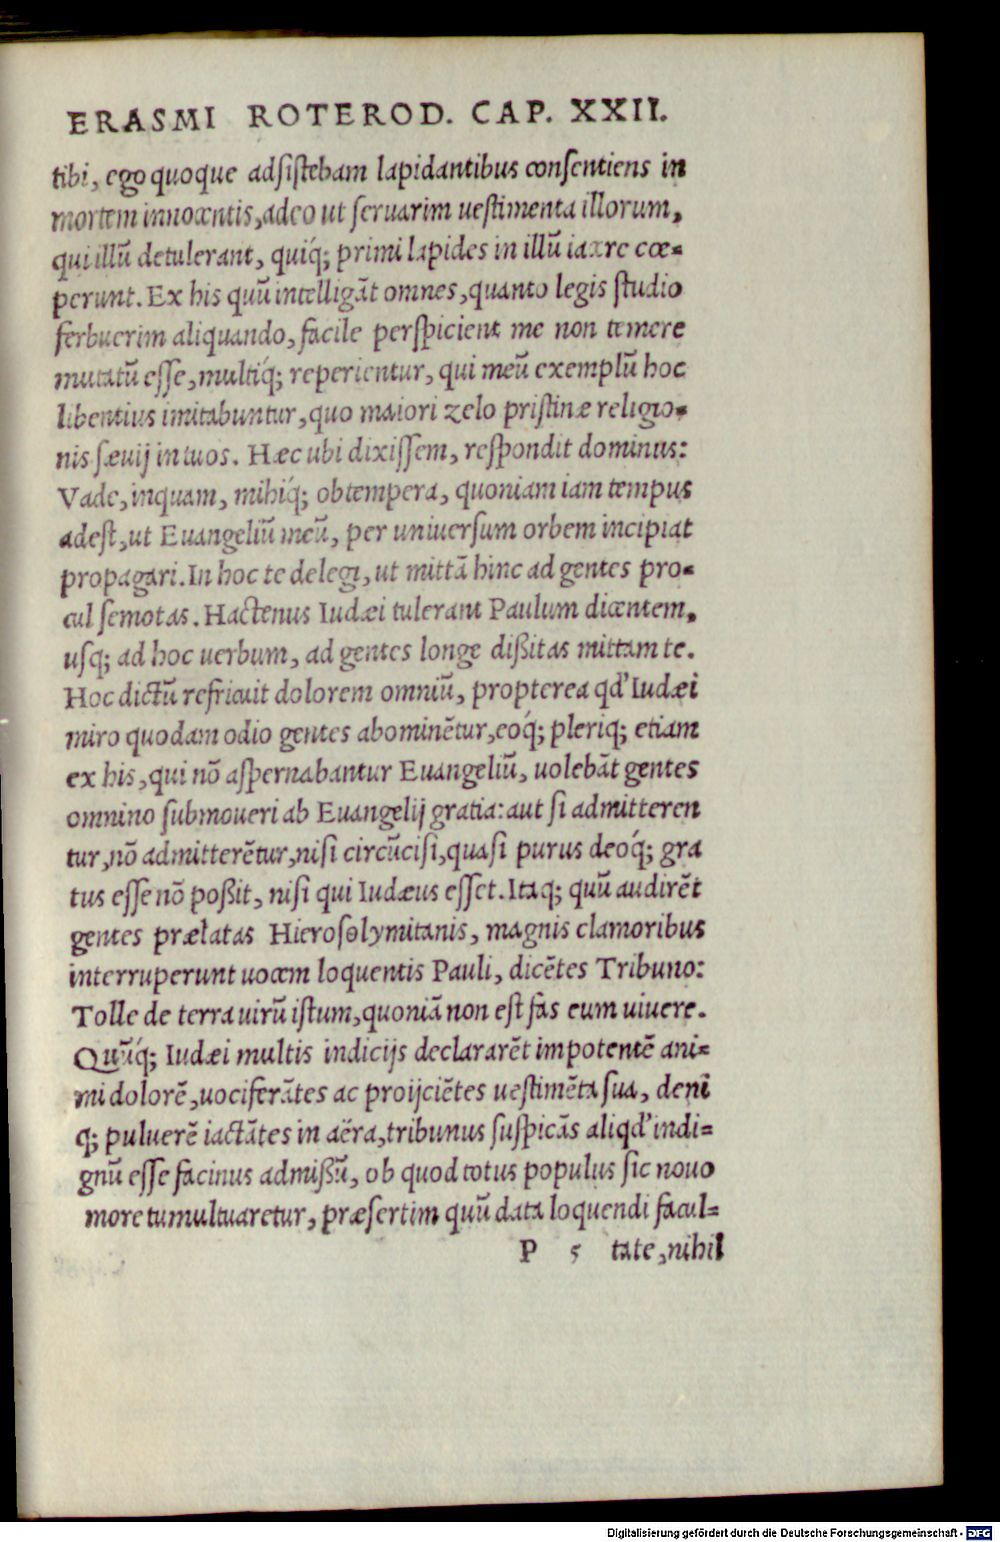 ERASMI ROTEROD. CAP. XXII.
tibi, ego quoque adſiſtebam lapidantibus conſentiens in
mortem innocentis, adeo ut ſeruarim ueſtimenta illorum,
qui illũ detulerant, quiq́; primi lapides in illũ iacere cœ=
perunt. Ex his quũ intelligãt omnes, quanto legis ſtudio
ferbuerim aliquando, facile perſpicient me non temere
mutatũ eſſe, multiq́; reperientur, qui meũ exemplũ hoc
libentius imitabuntur, quo maiori zelo priſtinæ religio=
nis ſæuij in tuos. Hæc ubi dixiſſem, reſpondit dominus:
Vade, inquam, mihiq́; obtempera, quoniam iam tempus
adeſt, ut Euangeliũ meũ, per uniuerſum orbem incipiat
propagari. In hoc te delegi, ut mittã hinc ad gentes pro=
cul ſemotas. Hactenus Iudæi tulerant Paulum dicentem,
uſq; ad hoc uerbum, ad gentes longe dißitas mittam te.
Hoc dictũ refricuit dolorem omniũ, propterea qđ Iudæi
miro quodam odio gentes abominẽtur, eoq́; pleriq; etiam
ex his, qui nõ aſpernabantur Euangeliũ, uolebãt gentes
omnino ſubmoueri ab Euangelij gratia: aut ſi admitteren
tur, nõ admitterẽtur, niſi circũciſi, quaſi purus deoq́; gra
tus eſſe nõ poßit, niſi qui Iudæus eſſet. Itaq; quũ audirẽt
gentes prælatas Hieroſolymitanis, magnis clamoribus
interruperunt uocem loquentis Pauli, dicẽtes Tribuno:
Tolle de terra uirũ iſtum, quoniã non eſt fas eum uiuere.
Quũq́; Iudæi multis indicijs declararẽt impotentẽ ani=
mi dolorẽ, uociferãtes ac proijciẽtes ueſtimẽta ſua, deni
q; puluerẽ iactãtes in aëra, tribunus ſuſpicãs aliqđ indi=
gnũ eſſe facinus admißũ, ob quod totus populus ſic nouo
more tumultuaretur, præſertim quũ data loquendi facul=
P 5 tate, nihil
Digitalisierung gefördert durch die Deutsche Forschungsgemeinschaft - DFG